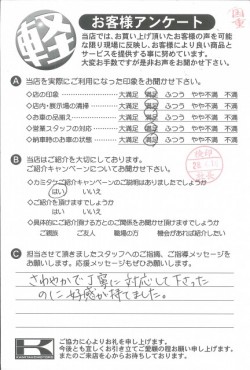 軽
お客様アンケート
当店では、お買い上げ頂いたお客様の声を可能
な限り現場に反映し、お客様により良い商品と
サービスを提供する事に努めています。
大変お手数ですが是非お声をお聞かせ下さい。
A 当店を実際にご利用になった印象をお聞かせ下さい。
◇店の印象 大満足 満足 ふつう やや不満 不満
◇店内・展示場の清掃 大満足 満足 ふつう やや不満 不満
◇お車の品揃え 大満足 満足 ふつう やや不満 不満
◇営業スタッフの対応 大満足 満足 ふつう やや不満 不満
◇納車時のお車の状態 大満足 満足 ふつう やや不満 不満
B 当店はご紹介を大切にしております。
ご紹介キャンペーンについてお聞かせ下さい。
◇カミタケご紹介キャンペーンのご説明はありましたでしょうか
はい いいえ
◇ご紹介キャンペーンにご興味をお聞かせ頂けますでしょうか
はい いいえ
◇具体的にご紹介頂ける方とのご関係をお聞かせ頂けますでしょうか
ご親戚 ご友人 職場の方 機会があれば紹介したい
C 担当させて頂きましたスタッフへのご指摘、ご指導メッセージを
お願いします。応援メッセージもぜひお願いします。
さわやかで丁寧に対応して下さった
のに好感が持てました。
K
ご協力に心よりお礼を申し上げます。
今後とも宜しくお引き立てご愛顧の程お願い申し上げます。
またのご来店を心からお待ちしております。